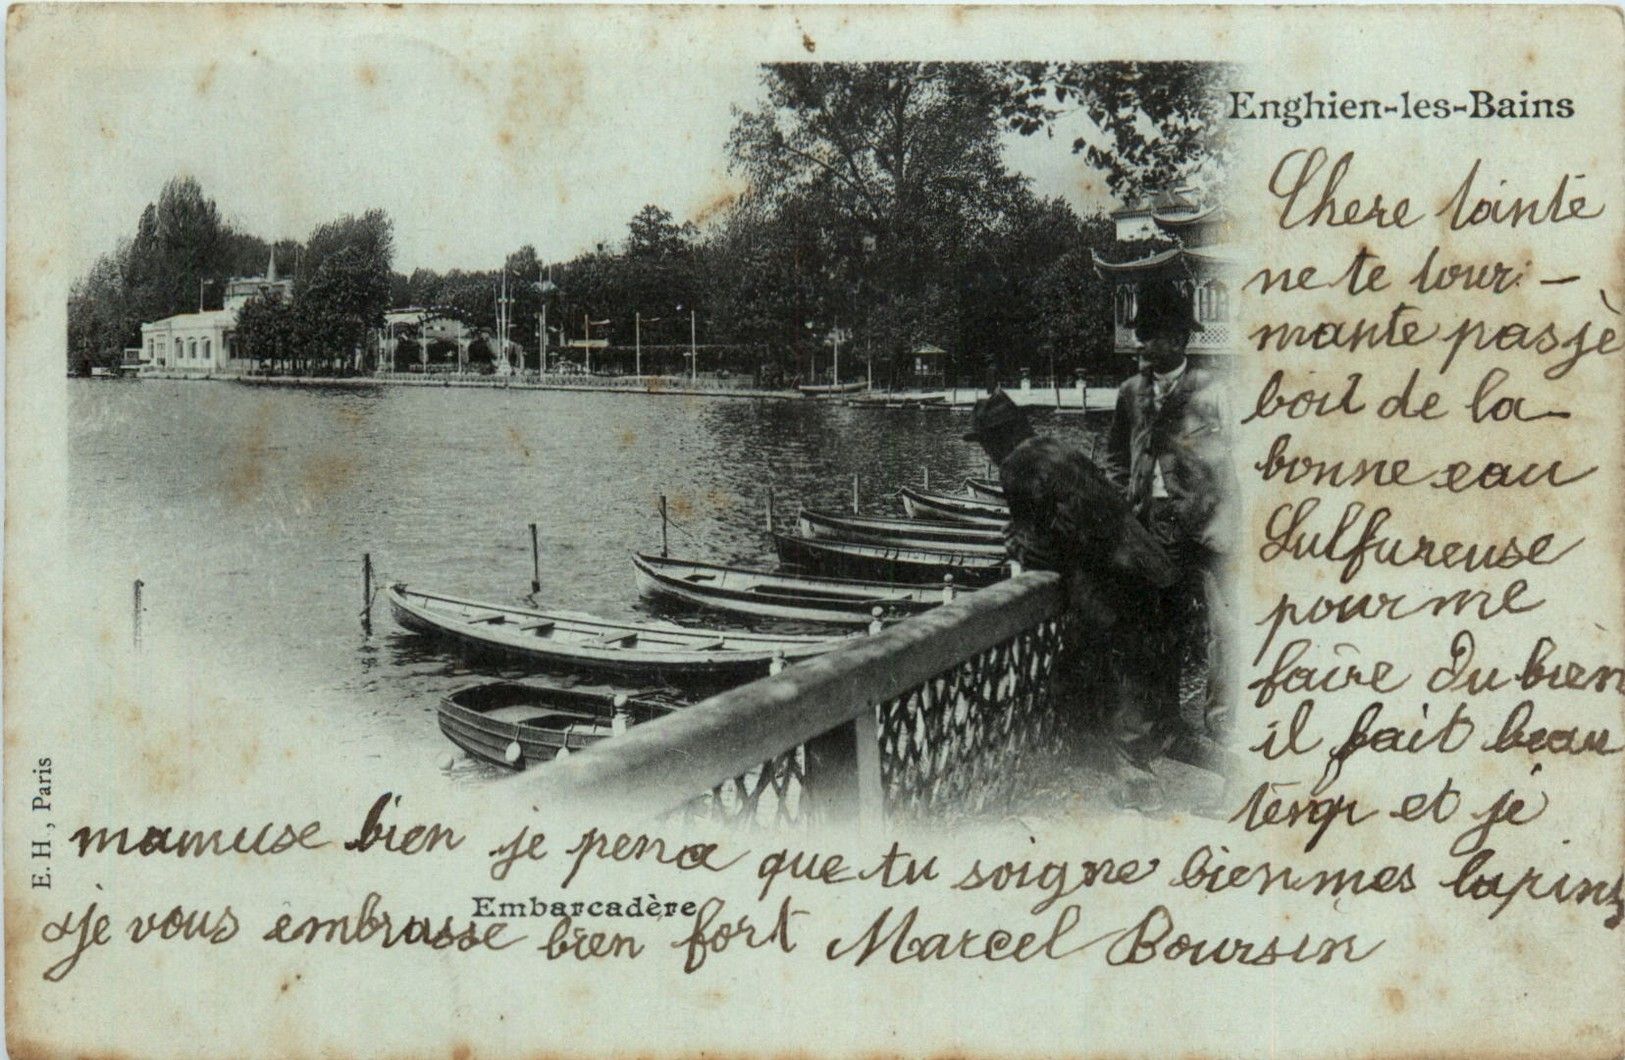 Enghien-les-Bains
Chere tainte
ne te tour-
mante pas jè
boit de la
bonne eau
Sulfureuse
pour me
faire du bien
il fait beau
temp et je
mamuse bien je pence que tu soigne bien mes lapins
je vous embrasse bien fort Marcel Boursin
Embarcadère
E. H., Paris